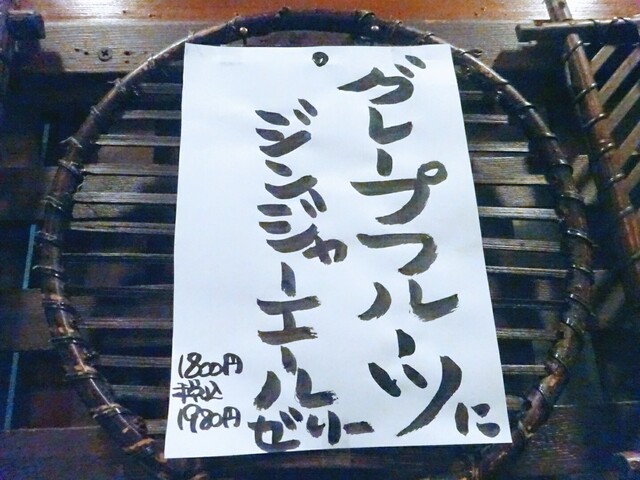 グレープフルーツに
ジンジャーエール
ゼリー
1800円
税込
1980円